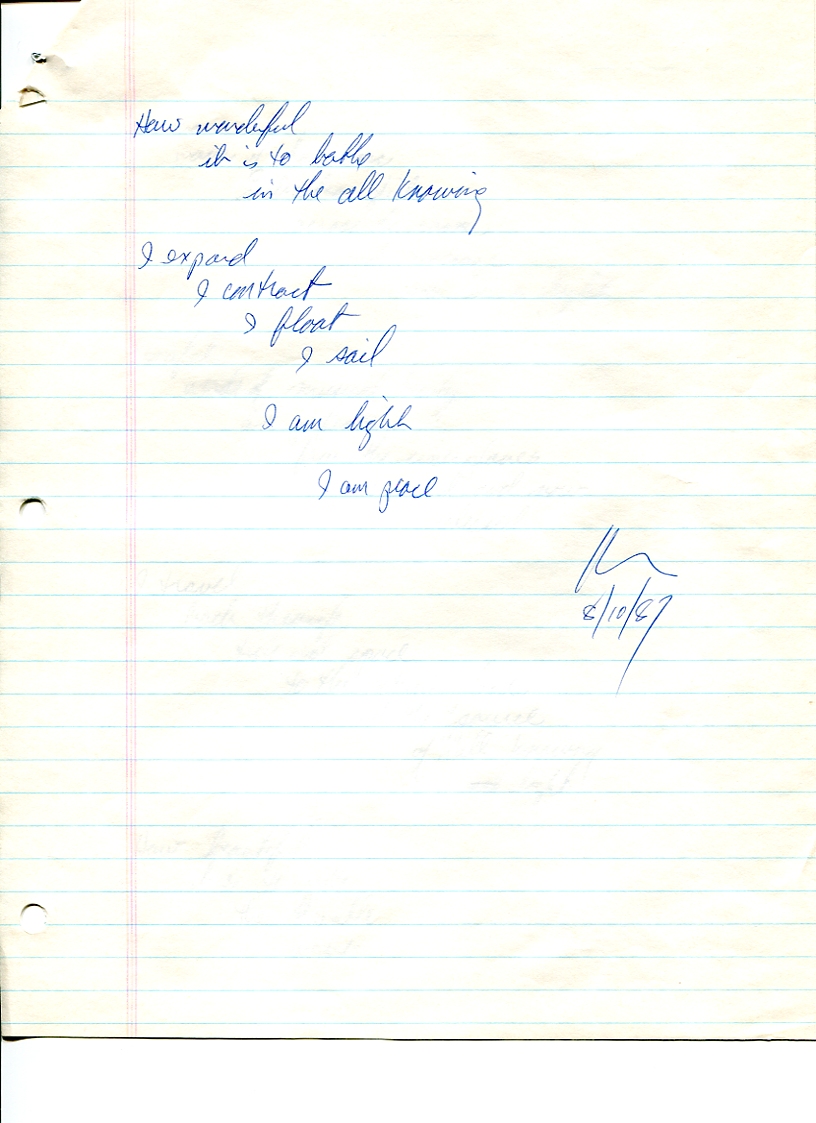 How wonderful
it is to bathe
in the all knowing
I expand
I contract
I float
I sail
I am light
I am peace
8/10/87